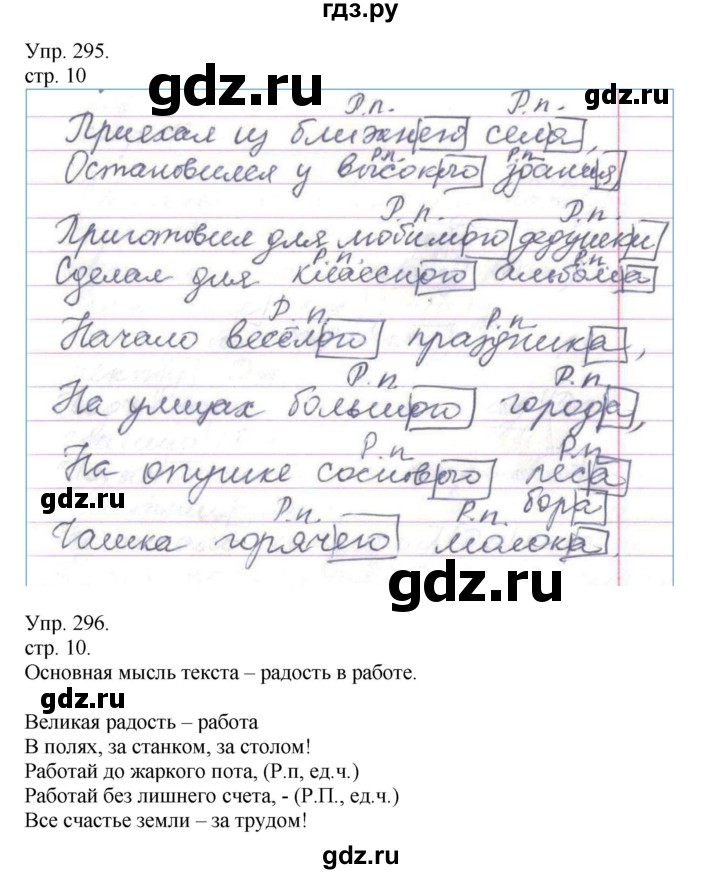 гдз.ру
Упр. 295.
стр. 10
gdz.ru
gdz.ru
Р.п. Р.п.
Приехал из ближнего села,
Р.п. Р.п.
Остановился у высокого здания
Р.п. Р.п.
Приготовил для любимого дедушки
Р.п. Р.п.
Сделал для классного альбома
Р.п. Р.п.
Начало весёлого праздника,
Р.п. Р.п.
На улицах большого города,
Р.п. Р.п.
На опушке соснового леса
gdz.ru
бора
Р.п. Р.п.
Чашка горячего молока
gdz.ru
Упр. 296.
стр. 10.
Основная мысль текста – радость в работе.
gdz.ru
Великая радость – работа
В полях, за станком, за столом!
Работай до жаркого пота, (Р.п, ед.ч.)
Работай без лишнего счета, - (Р.П., ед.ч.)
Все счастье земли – за трудом!
gdz.ru